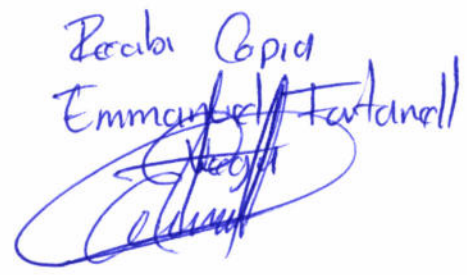 Recabi Copia
Emmanuel Fontanell
Vega